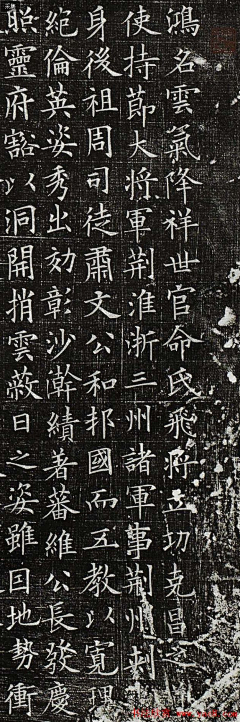 鴻名雲氣降祥世官命氏飛將立功克昌之
使持節大將軍荊淮浙三州諸軍事荊州刺
身後祖周司徒肅文公和邦國而五教以寬理
絶倫英姿秀出効彰沙幹績著蕃維公長發慶
照靈府豁以洞開捎雲蔽日之姿雖因地勢衝